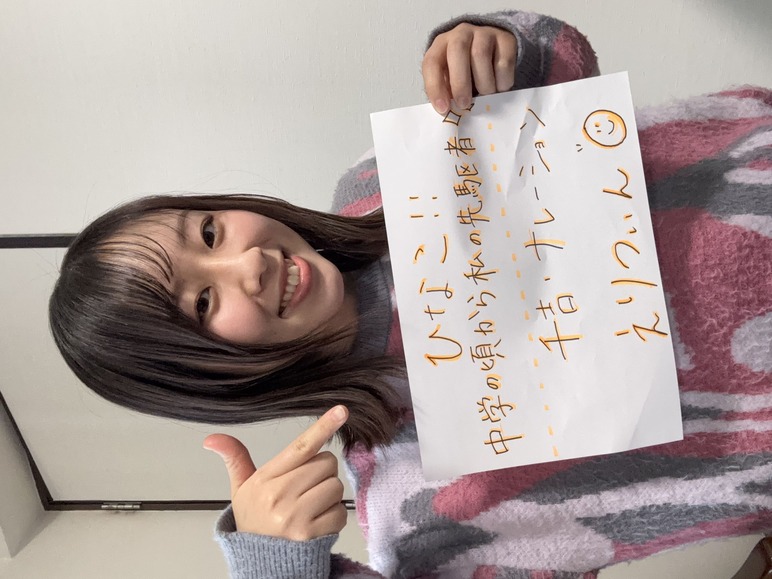 ひなこ!!
中学の頃から私の先駆者
千吉・ナレーション
えりつぃん